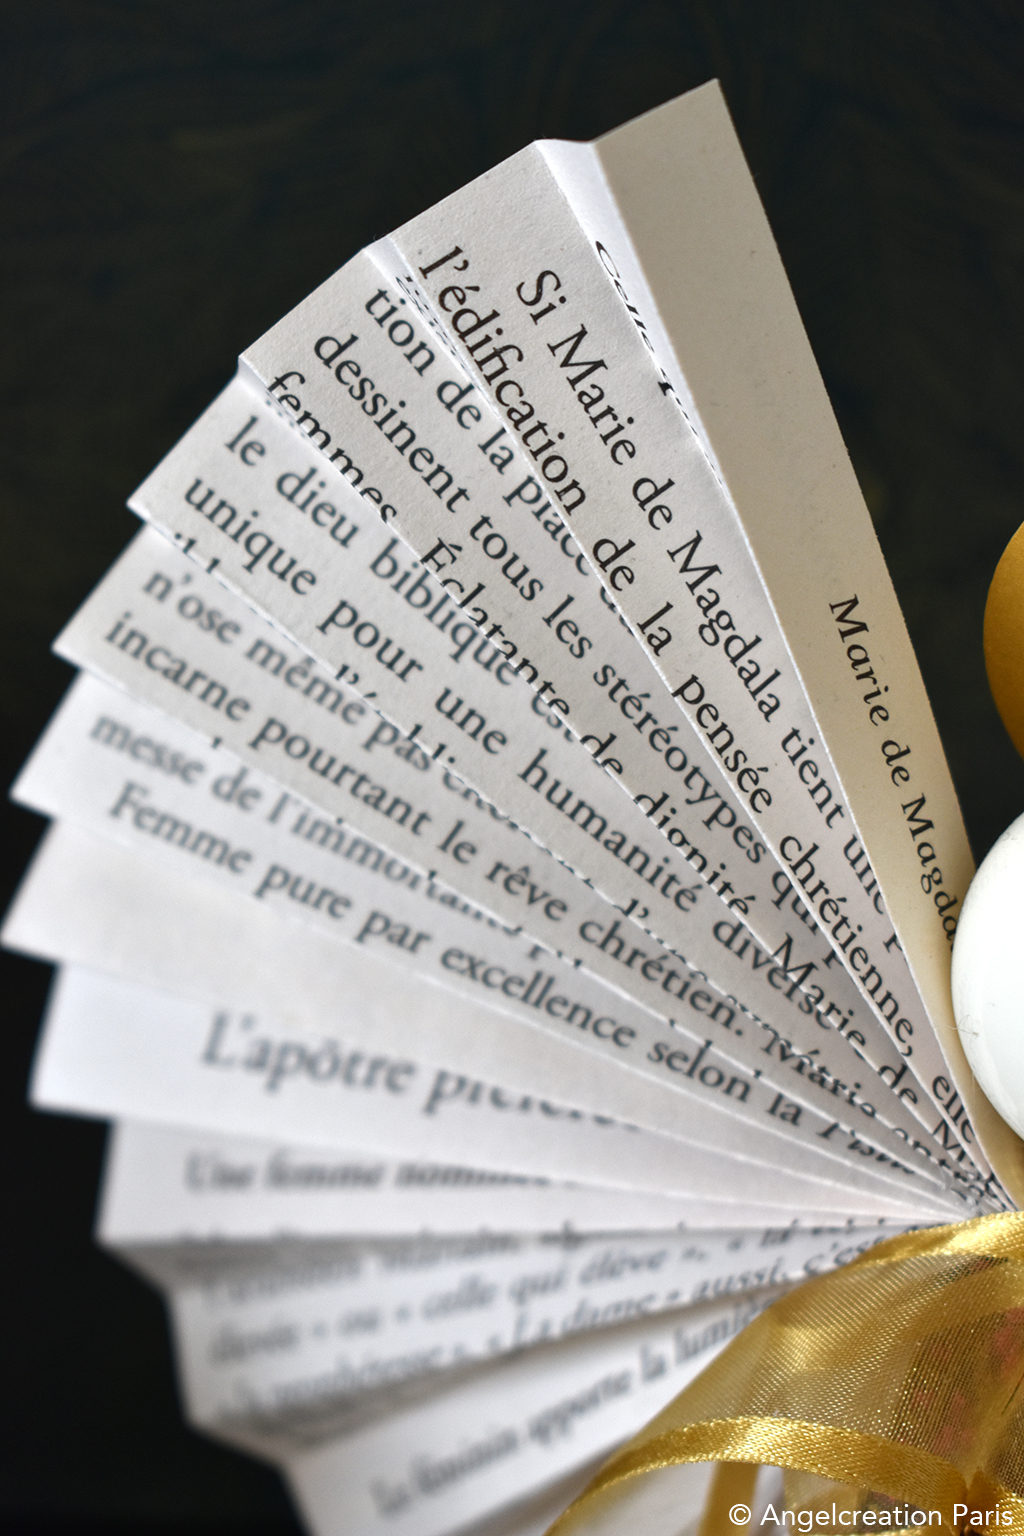 Marie de Magda
Si Marie de Magdala tient une
l'édification de la pensée chrétienne, elle
tion de la place
dessinent tous les stéréotypes qu
femmes. Éclatantes de dignité, Marie de M
le dieu biblique
unique pour une humanité diverse
n'ose même pas
incarne pourtant le rêve chrétien. Marie
messe de l'immortal
Femme pure par excellence selon la
L'apôtre préféré
Une femme nommée
élevée » ou « celle qui élève », « la
la prophétesse ». « La dame » aussi, c'est
Le féminin apporte la lumière
© Angelcreation Paris